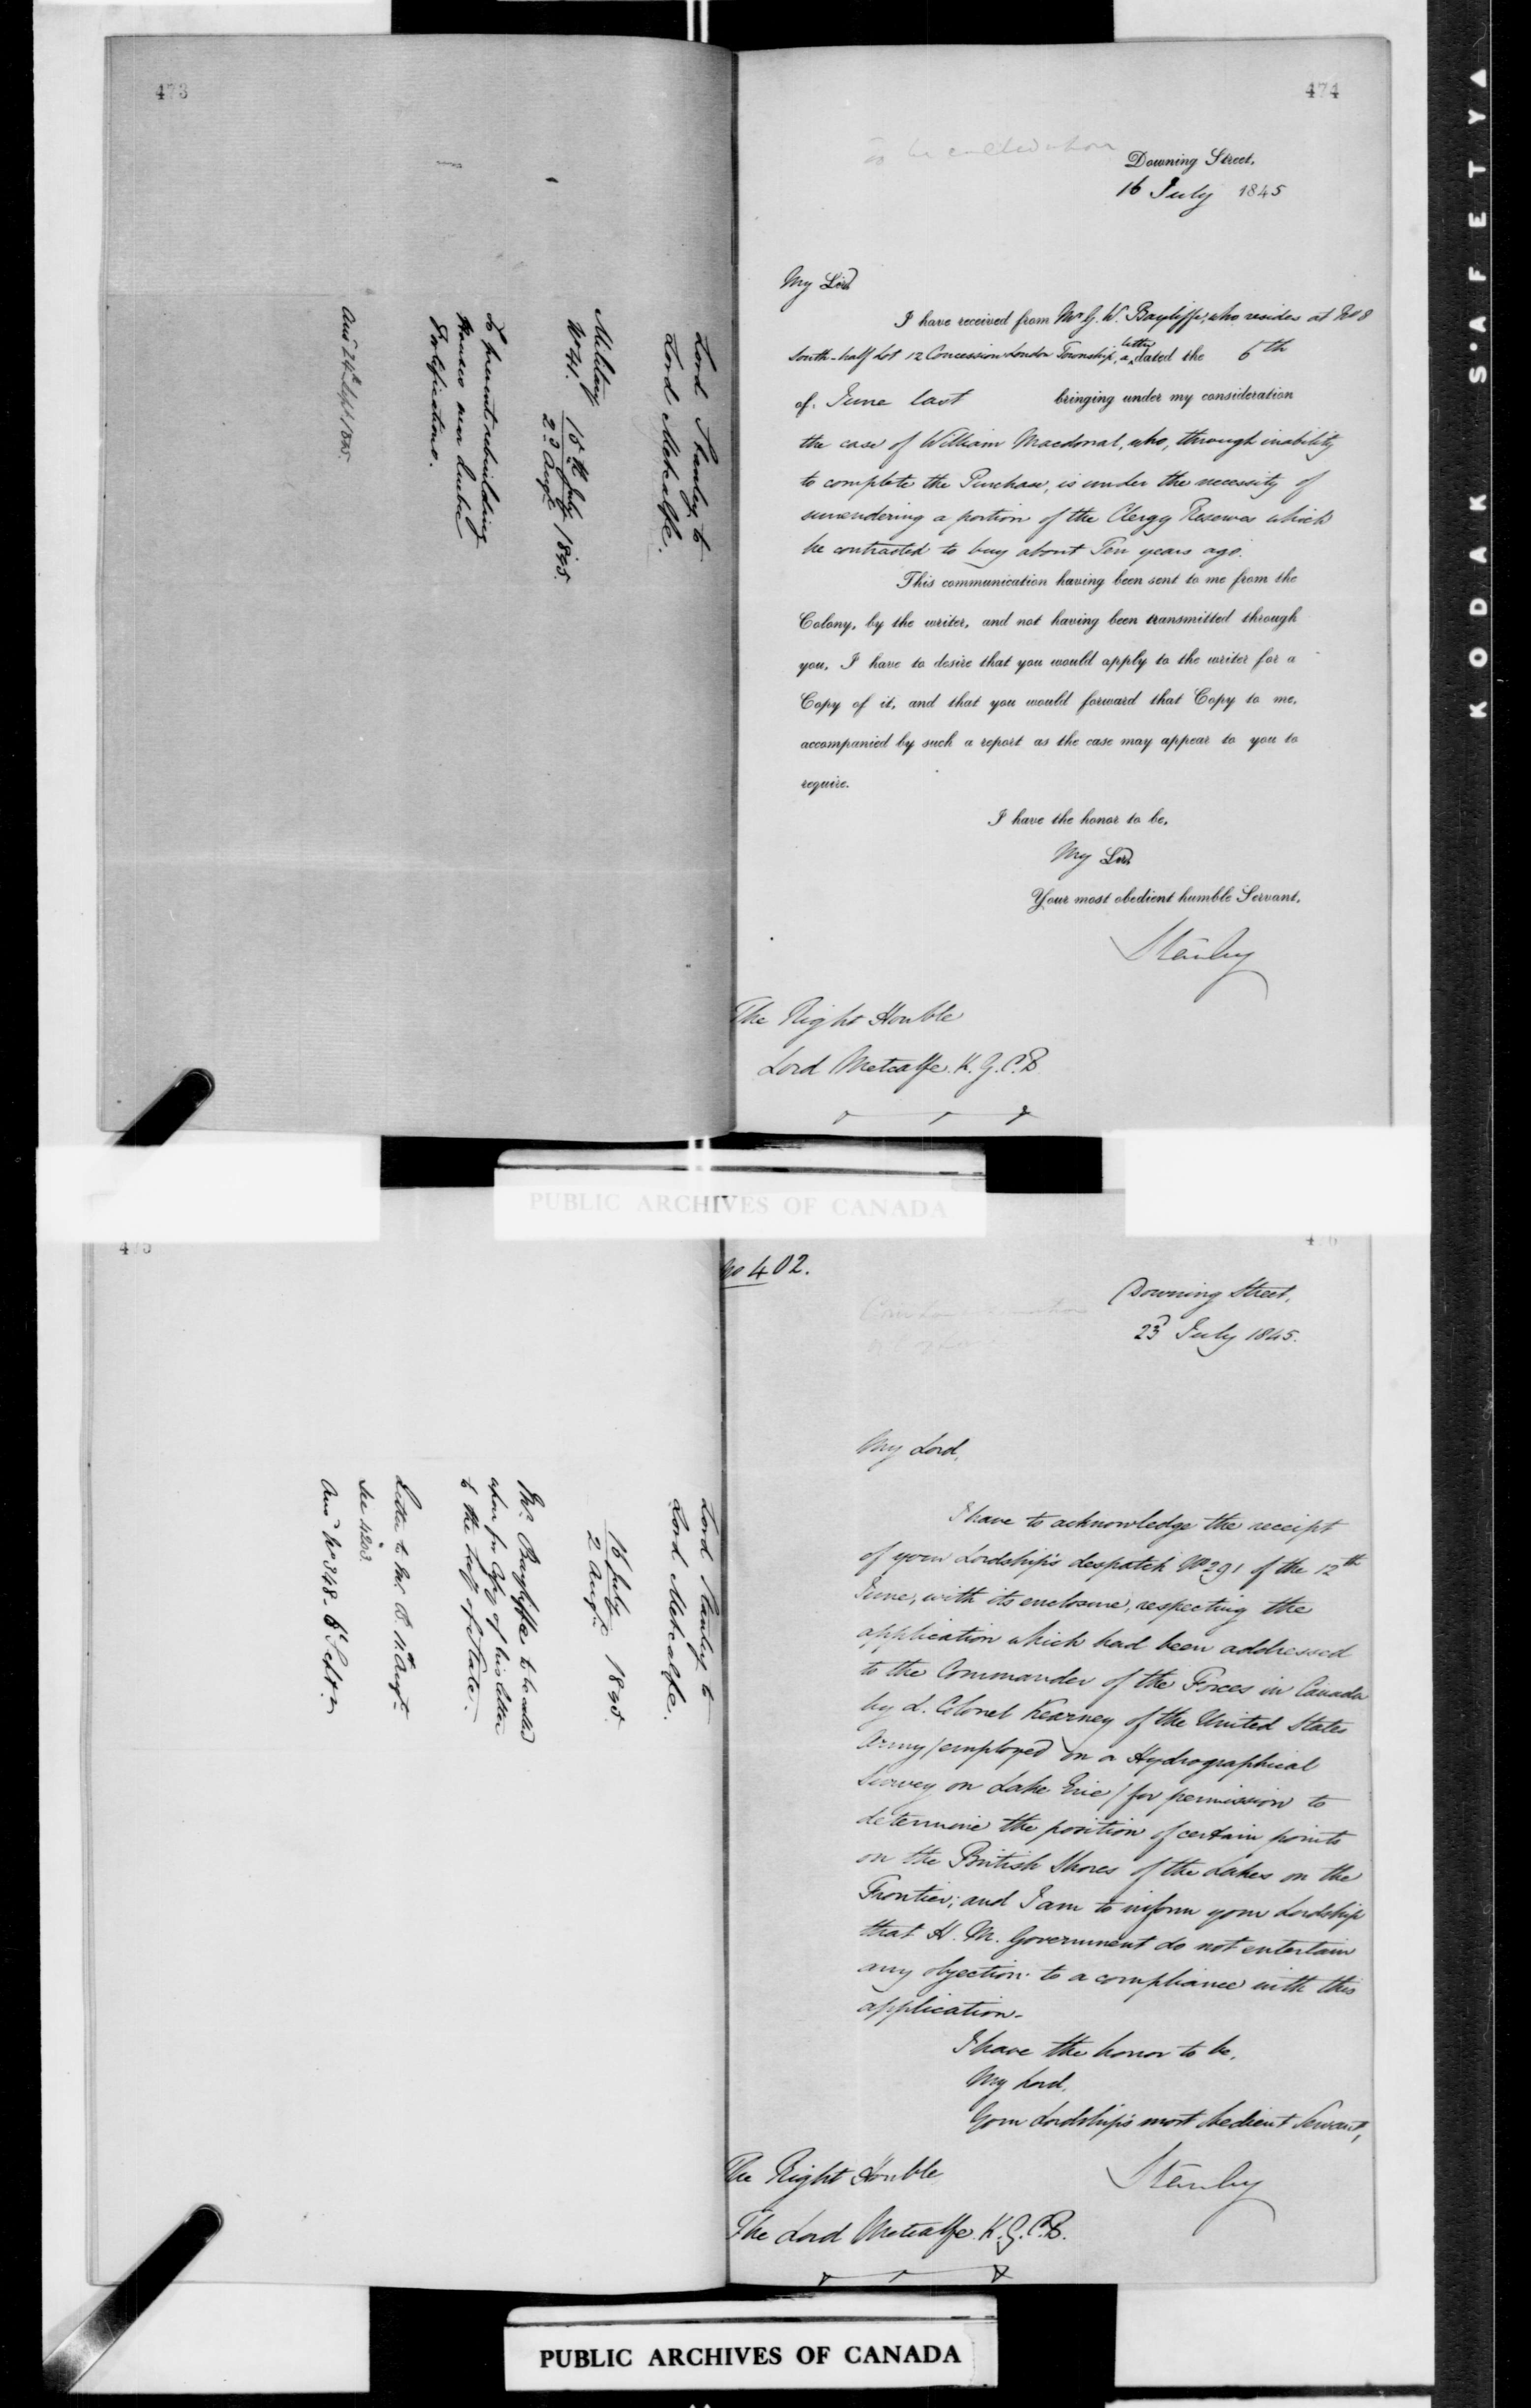 473
Lord Stanley to
Lord Metcalfe.
Military
No 41.
16th July 1845.
2d Augt
To prevent rebuilding
Houses near Quebec
Fortifications.
474
To be called upon
Downing Street,
16 July 1845
My Lord
I have received from Mr G. W. Bayliffe, who resides at No 8
South-half Lot 12 Concession London Township, a letter dated the 6th
of June last bringing under my consideration
the case of William Macdonal, who, through inability
to complete the Purchase, is under the necessity of
surrendering a portion of the Clergy Reserves which
he contracted to buy about Ten years ago.
This communication having been sent to me from the
Colony, by the writer, and not having been transmitted through
you, I have to desire that you would apply to the writer for a
Copy of it, and that you would forward that Copy to me,
accompanied by such a report as the case may appear to you to
require.
I have the honor to be,
My Lord
Your most obedient humble Servant,
Stanley
The Right Honble
Lord Metcalfe. K.G.C.B
PUBLIC ARCHIVES OF CANADA
475
Lord Stanley to
Lord Metcalfe.
16 July 1845.
2 Augt
Mr. Bayliffe to be called
upon for Copy of his letter
to the Secy of State.
Letter to Mr. B. 11 Augt
See 4203.
Ansd No 348. 8 Septr
476
No 402.
Downing Street,
23d July 1845.
My Lord,
I have to acknowledge the receipt
of your Lordship's despatch No 291 of the 12th
June, with its enclosure, respecting the
application which had been addressed
to the Commander of the Forces in Canada
by L. Colonel Kearney of the United States
Army / employed on a Hydrographical
Survey on Lake Erie / for permission to
determine the position of certain points
on the British Shores of the Lakes on the
Frontier; and I am to inform your Lordship
that H. M. Government do not entertain
any objection to a compliance with this
application.
I have the honor to be,
My Lord,
Your Lordship's most obedient Servant,
Stanley
The Right Honble
The Lord Metcalfe. K.G.C.B.
PUBLIC ARCHIVES OF CANADA
KODAK S'AFETY